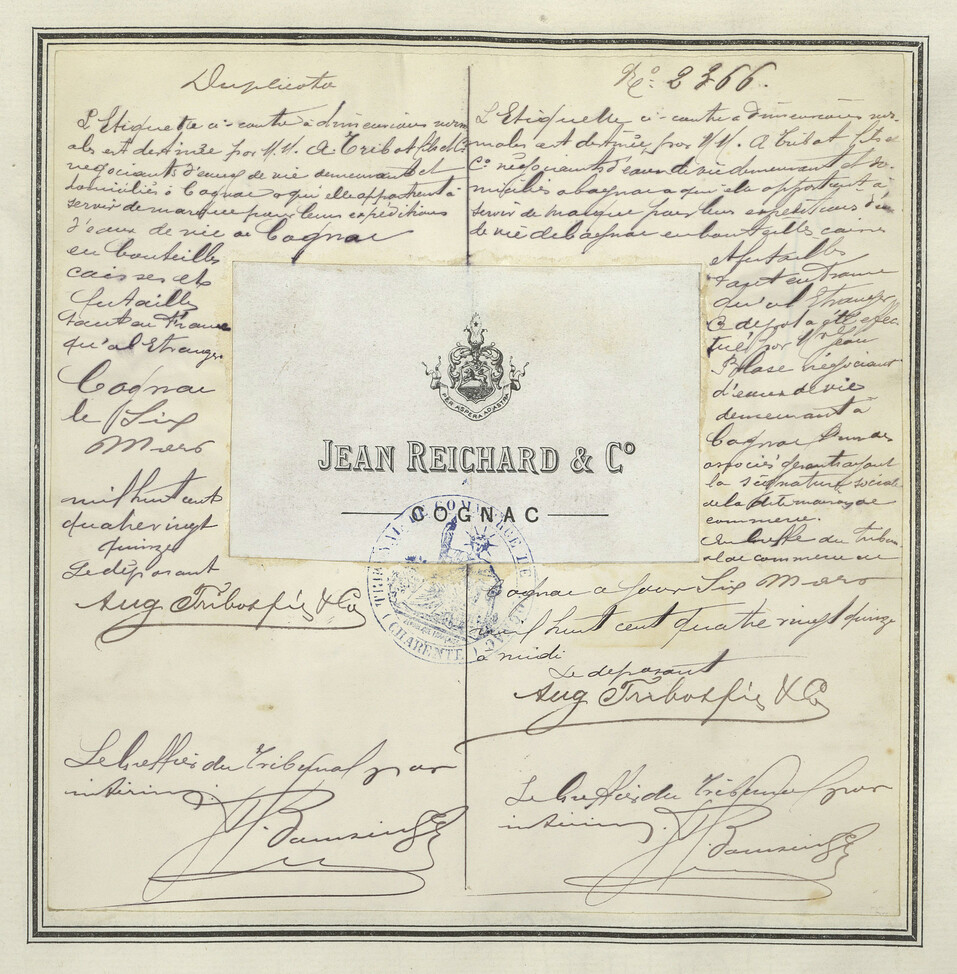 Duplicata
L'Etiquette ci-contre à dimensions norm
ales est destinée par M.M. A Tribot fils et Co
negociants d'eaux de vie demeurant et
domiciliés à Cognac a qui elle appartient à
servir de marque pour leurs expéditions
d'eaux de vie de Cognac
en bouteilles
caisses et
futailles
tant en France
qu'a l'Etranger
Cognac
le Six
Mars
mil huit cent
quatre vingt
quinze
Le déposant
Aug Tribot fils & Co
Le Greffier du Tribunal par
intérim
No: 2366.
L'Etiquette ci-contre à dimensions nor-
males est destinée par M.M. A Tribot fils et
Co négociants d'eaux de vie demeurant et do-
miciliés a Cognac a qui elle appartient à
servir de marque pour leurs expeditions d'eau
de vie de Cognac en bouteilles caisses
et futailles
tant en France
qu'a l'Etranger
Ce depot a été effec
tué par Mr Jean
Blase négociant
d'eaux de vie
demeurant à
Cognac l'un des
associés gerants ayant
la signature sociale
de la dite marque de
commerce.
Au Greffe du tribu
nal de commerce de
Cognac ce jour Six Mars
mil huit cent quatre vingt quinze
à midi
Le deposant
Aug Tribot fils & Co
Le Greffier du Tribunal par
intérim.
PER ASPERA AD ASTRA
JEAN REICHARD & Co
COGNAC
TRIBUNAL DE COMMERCE DE COGNAC
(CHARENTE)